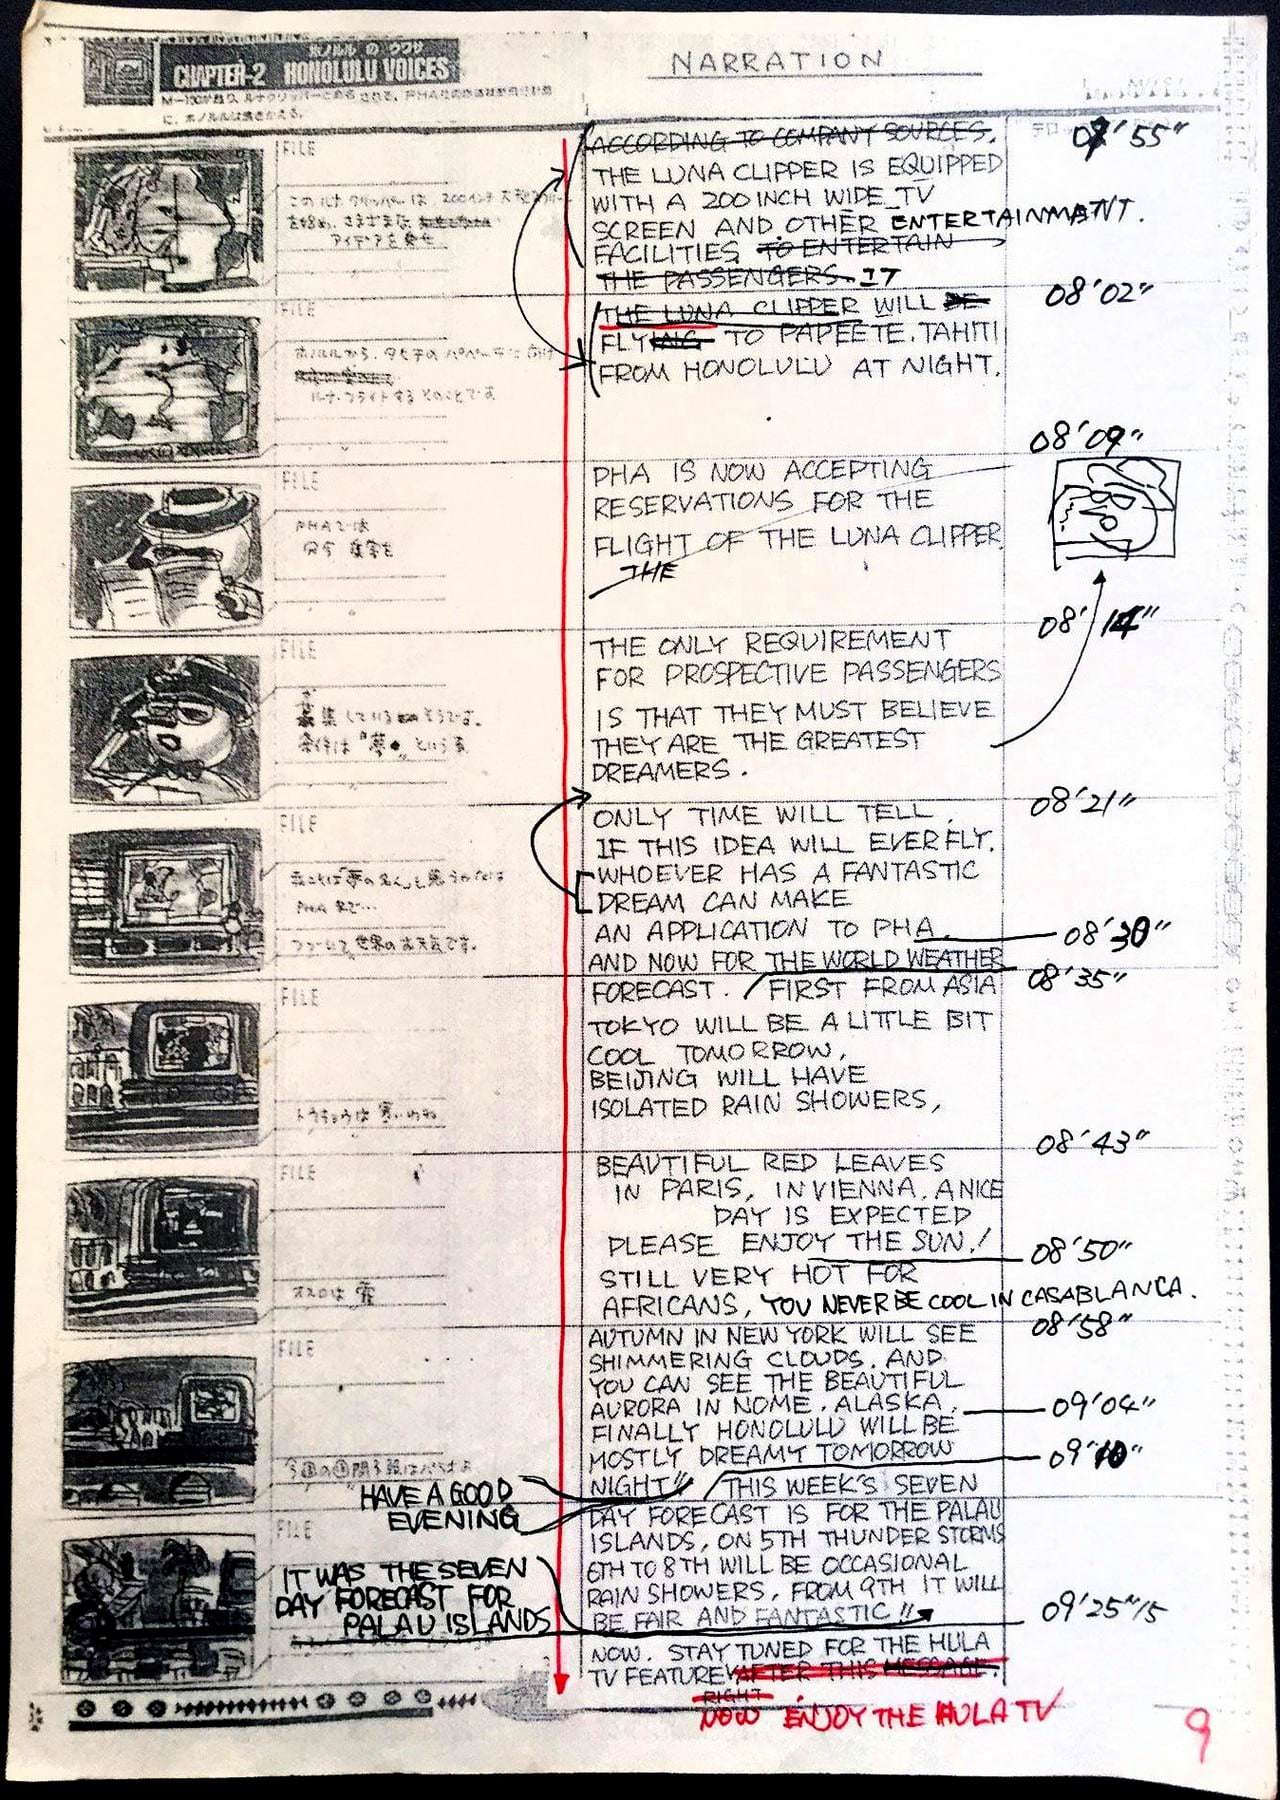 ホノルル の ウワサ
CHAPTER-2 HONOLULU VOICES
NARRATION
FILE
このルナクリッパーは、200インチ
を始め、さまざまな
アイデアを
ACCORDING TO COMPANY SOURCES.
07'55"
THE LUNA CLIPPER IS EQUIPPED
WITH A 200 INCH WIDE TV
SCREEN AND OTHER ENTERTAINMATNT.
FACILITIES TO ENTERTAIN
THE PASSENGERS. IT
08'02"
FILE
ホノルルから、タヒチの パペーテに向け
ルナ・フライトするとのことです
THE LUNA CLIPPER WILL BE
FLYING TO PAPEETE. TAHITI
FROM HONOLULU AT NIGHT.
08'09"
FILE
PHAでは
PHA IS NOW ACCEPTING
RESERVATIONS FOR THE
FLIGHT OF THE LUNA CLIPPER.
THE
08'14"
FILE
募集している そうです。
条件は「夢 」という
THE ONLY REQUIREMENT
FOR PROSPECTIVE PASSENGERS
IS THAT THEY MUST BELIEVE
THEY ARE THE GREATEST
DREAMERS.
08'21"
FILE
我こそは「夢の名人」と思うかたは
PHA まで…
つづいて 世界のお天気です。
ONLY TIME WILL TELL.
IF THIS IDEA WILL EVER FLY.
WHOEVER HAS A FANTASTIC
DREAM CAN MAKE
AN APPLICATION TO PHA.
08'30"
AND NOW FOR THE WORLD WEATHER
08'35"
FILE
トウキョウは 寒いわね
FORECAST. FIRST FROM ASIA
TOKYO WILL BE A LITTLE BIT
COOL TOMORROW,
BEIJING WILL HAVE
ISOLATED RAIN SHOWERS,
08'43"
FILE
オスロは 雪
BEAUTIFUL RED LEAVES
IN PARIS, IN VIENNA, A NICE
DAY IS EXPECTED
PLEASE ENJOY THE SUN!
08'50"
STILL VERY HOT FOR
AFRICANS, YOU NEVER BE COOL IN CASABLANCA.
08'58"
FILE
AUTUMN IN NEW YORK WILL SEE
SHIMMERING CLOUDS. AND
YOU CAN SEE THE BEAUTIFUL
AURORA IN NOME. ALASKA.
09'04"
FINALLY HONOLULU WILL BE
MOSTLY DREAMY TOMORROW
09'10"
NIGHT" THIS WEEK'S SEVEN
"HAVE A GOOD
EVENING
FILE
DAY FORECAST IS FOR THE PALAU
ISLANDS, ON 5TH THUNDER STORMS
6TH TO 8TH WILL BE OCCASIONAL
RAIN SHOWERS, FROM 9TH IT WILL
BE FAIR AND FANTASTIC"
IT WAS THE SEVEN
DAY FORECAST FOR
PALAU ISLANDS
09'25"15
NOW. STAY TUNED FOR THE HULA
TV FEATURE AFTER THIS MESSAGE.
RIGHT
NOW ENJOY THE HULA TV
9